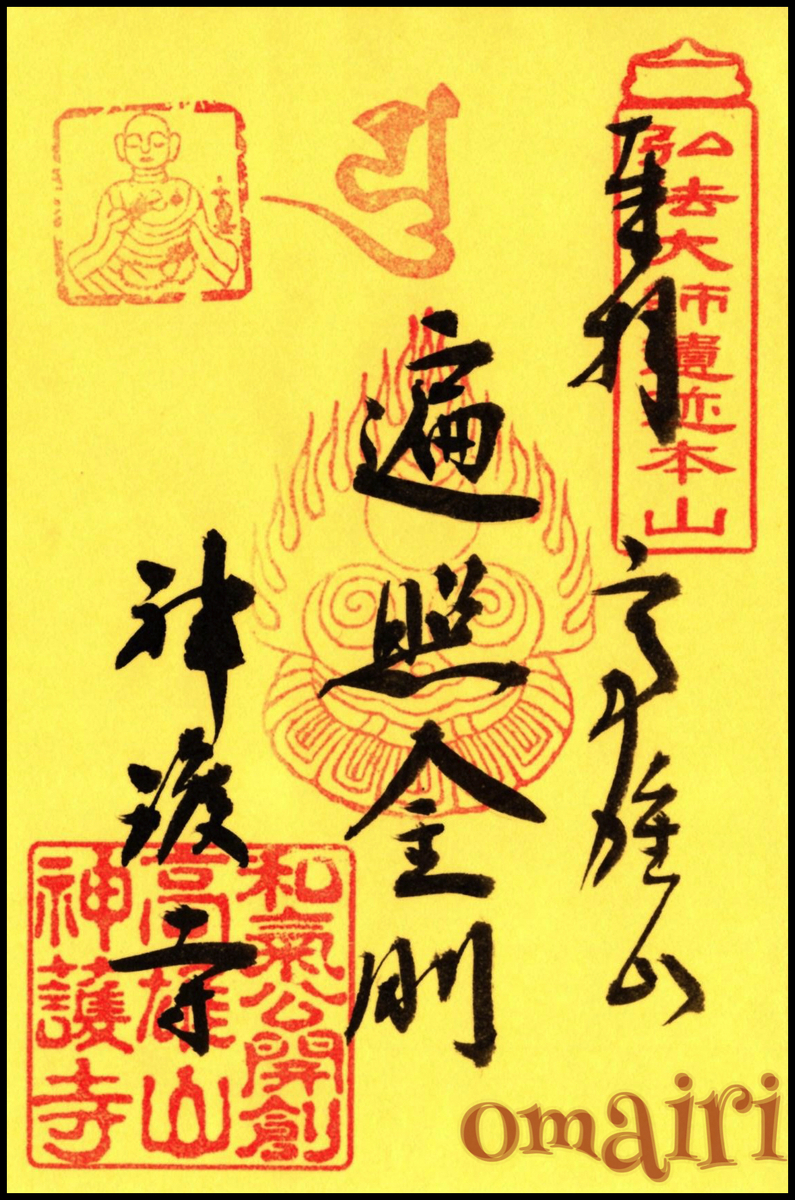 弘法大師遺迹本山
奉拝
高雄山
遍照金剛
神護寺
和氣公開創
高雄山
神護寺
omairi